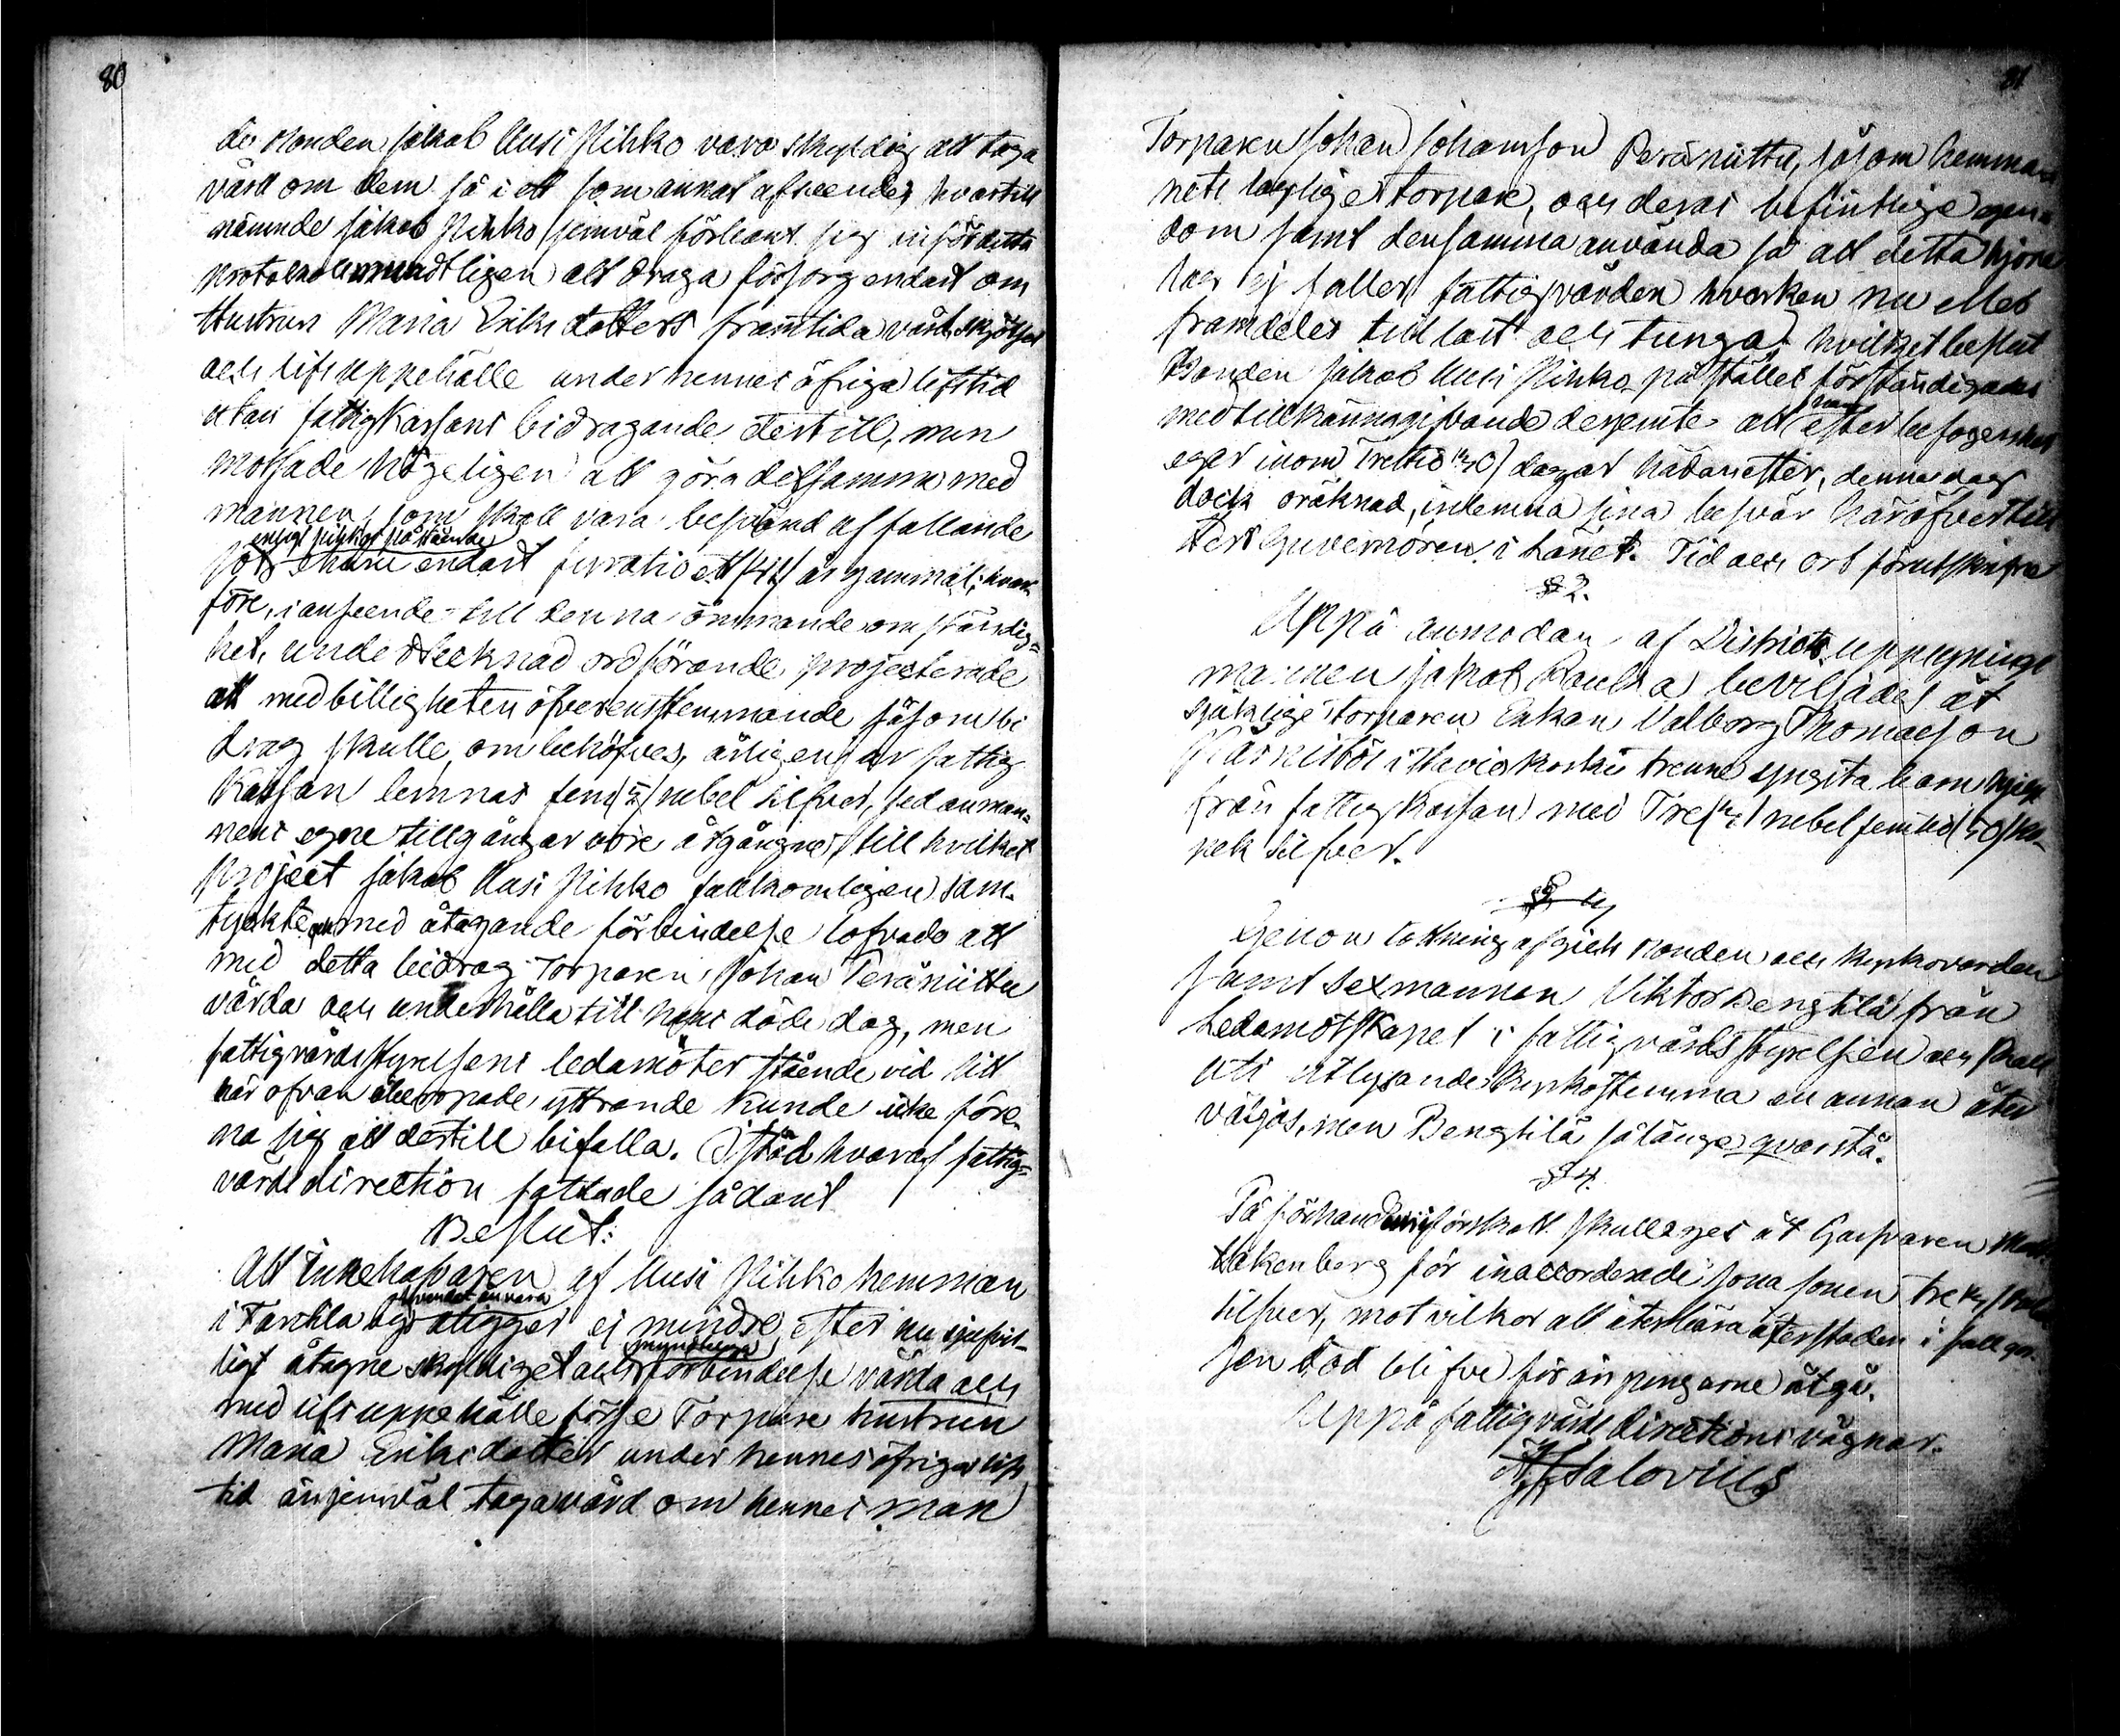 80
de Bonden Jakob Uusi Pihko vara skyldig att taga
vård om dem så i ett som annat afseende, hvartill
nämnde Jakob Pihko jemväl förband sig inför detta
protocoll mundtligen att draga försorg endast om
Hustrun Maria Eriks dotters framtida vård, skötsel
och lifsuppehälle under hennes öfriga lifstid
utan fattigkassans bidragande dertill, men
motsade högeligen att göra detsamma med
mannen, som skall vara besvärad af fallande
enligt Pihkos påstående
sot endast fyratioett /41/ år gammal; hvar-
före, i anseende till denna ömmande omständig=
het, undertecknad ordförande projecterade
att med billigheten öfverensstemmande såsom bi
drag skulle, om behöfves, årligen ur fattig
Kassan lemnas fem /5/ rubel silfver, sedan man-
nens egne tillgångar vore åtgångne, till hvilket
project Jakob Uusi Pihko fullkomligen sam-
tyckte och med åtagande förbindelse lofvade att
med detta bidrag Torparen Johan Peräniittu
vårda och underhålla till hans döde dag, men
fattigvårdsstyrelsens ledamöter stående vid sitt
här ofvan åberopade yttrande kunde icke före-
na sig att dertill bifalla. I stöd hvaraf fattig=
vårdsdirection fattade sådant
Beslut:
Att Innehafvaren af Uusi Pihko hemman
i Tanttila by åligger ej mindre, efter nu sjelfvil-
myndtliga
ligt åtagne skyldighet och förbindelse vårda och
med lifsuppehälle förse Torpare hustrun
Maria Eriksdotter under hennes öfriga lifs
tid än jemväl taga vård om hennes man
81
Torparen Johan Johansson Peräniittu, såsom hemma-
nets laglige torpare, och deras befintlige egen=
dom samt densamma använda så att detta hjona
lag ej faller fattigvården hvarken nu eller
framdeles till last och tunga, hvilket beslut
Bonden Jakob Uusi Pihko på stället förständigades
han
med tillkännagifvande derjemte att efter befogenhet
eger inom Trettio /30/ dagar hädanefter, denne dag
dock oräknad, inlemna sina besvär häröfver till
Herr Guvernören i Länet. Tid och ort förutskrifna
§ 2.
Uppå anmodan af Districts uppsynings
mannen Jakob Rauhta beviljades åt
sjuklige torparen Enkan Valborg Thomasson
i Haviokoski trenne yngsta barn hjelp
från fattigkassan med Tre /3/ rubel femtio /50/ ko-
pek silfver.
§ 3
Genom lottning afgick Bonden och kyrkovärden
samt sexmannen Viktor Bengtilä från
Ledamotskapet i fattigvårdsstyrelsen och skall
uti utlysande kyrkostemma en annan åter
väljas, men Bengtilä sålänge qvarstå.
§ 4.
På förhand förskott skulle ges åt Gasparen
Hakenberg för inaccorderade Jona sonen tre
silfver, mot vilkor att återbära återstoden i fall gos-
sen död blifve för än pengarne åtgå.
Uppå fattigvårds Directions vägnar.
Salovius